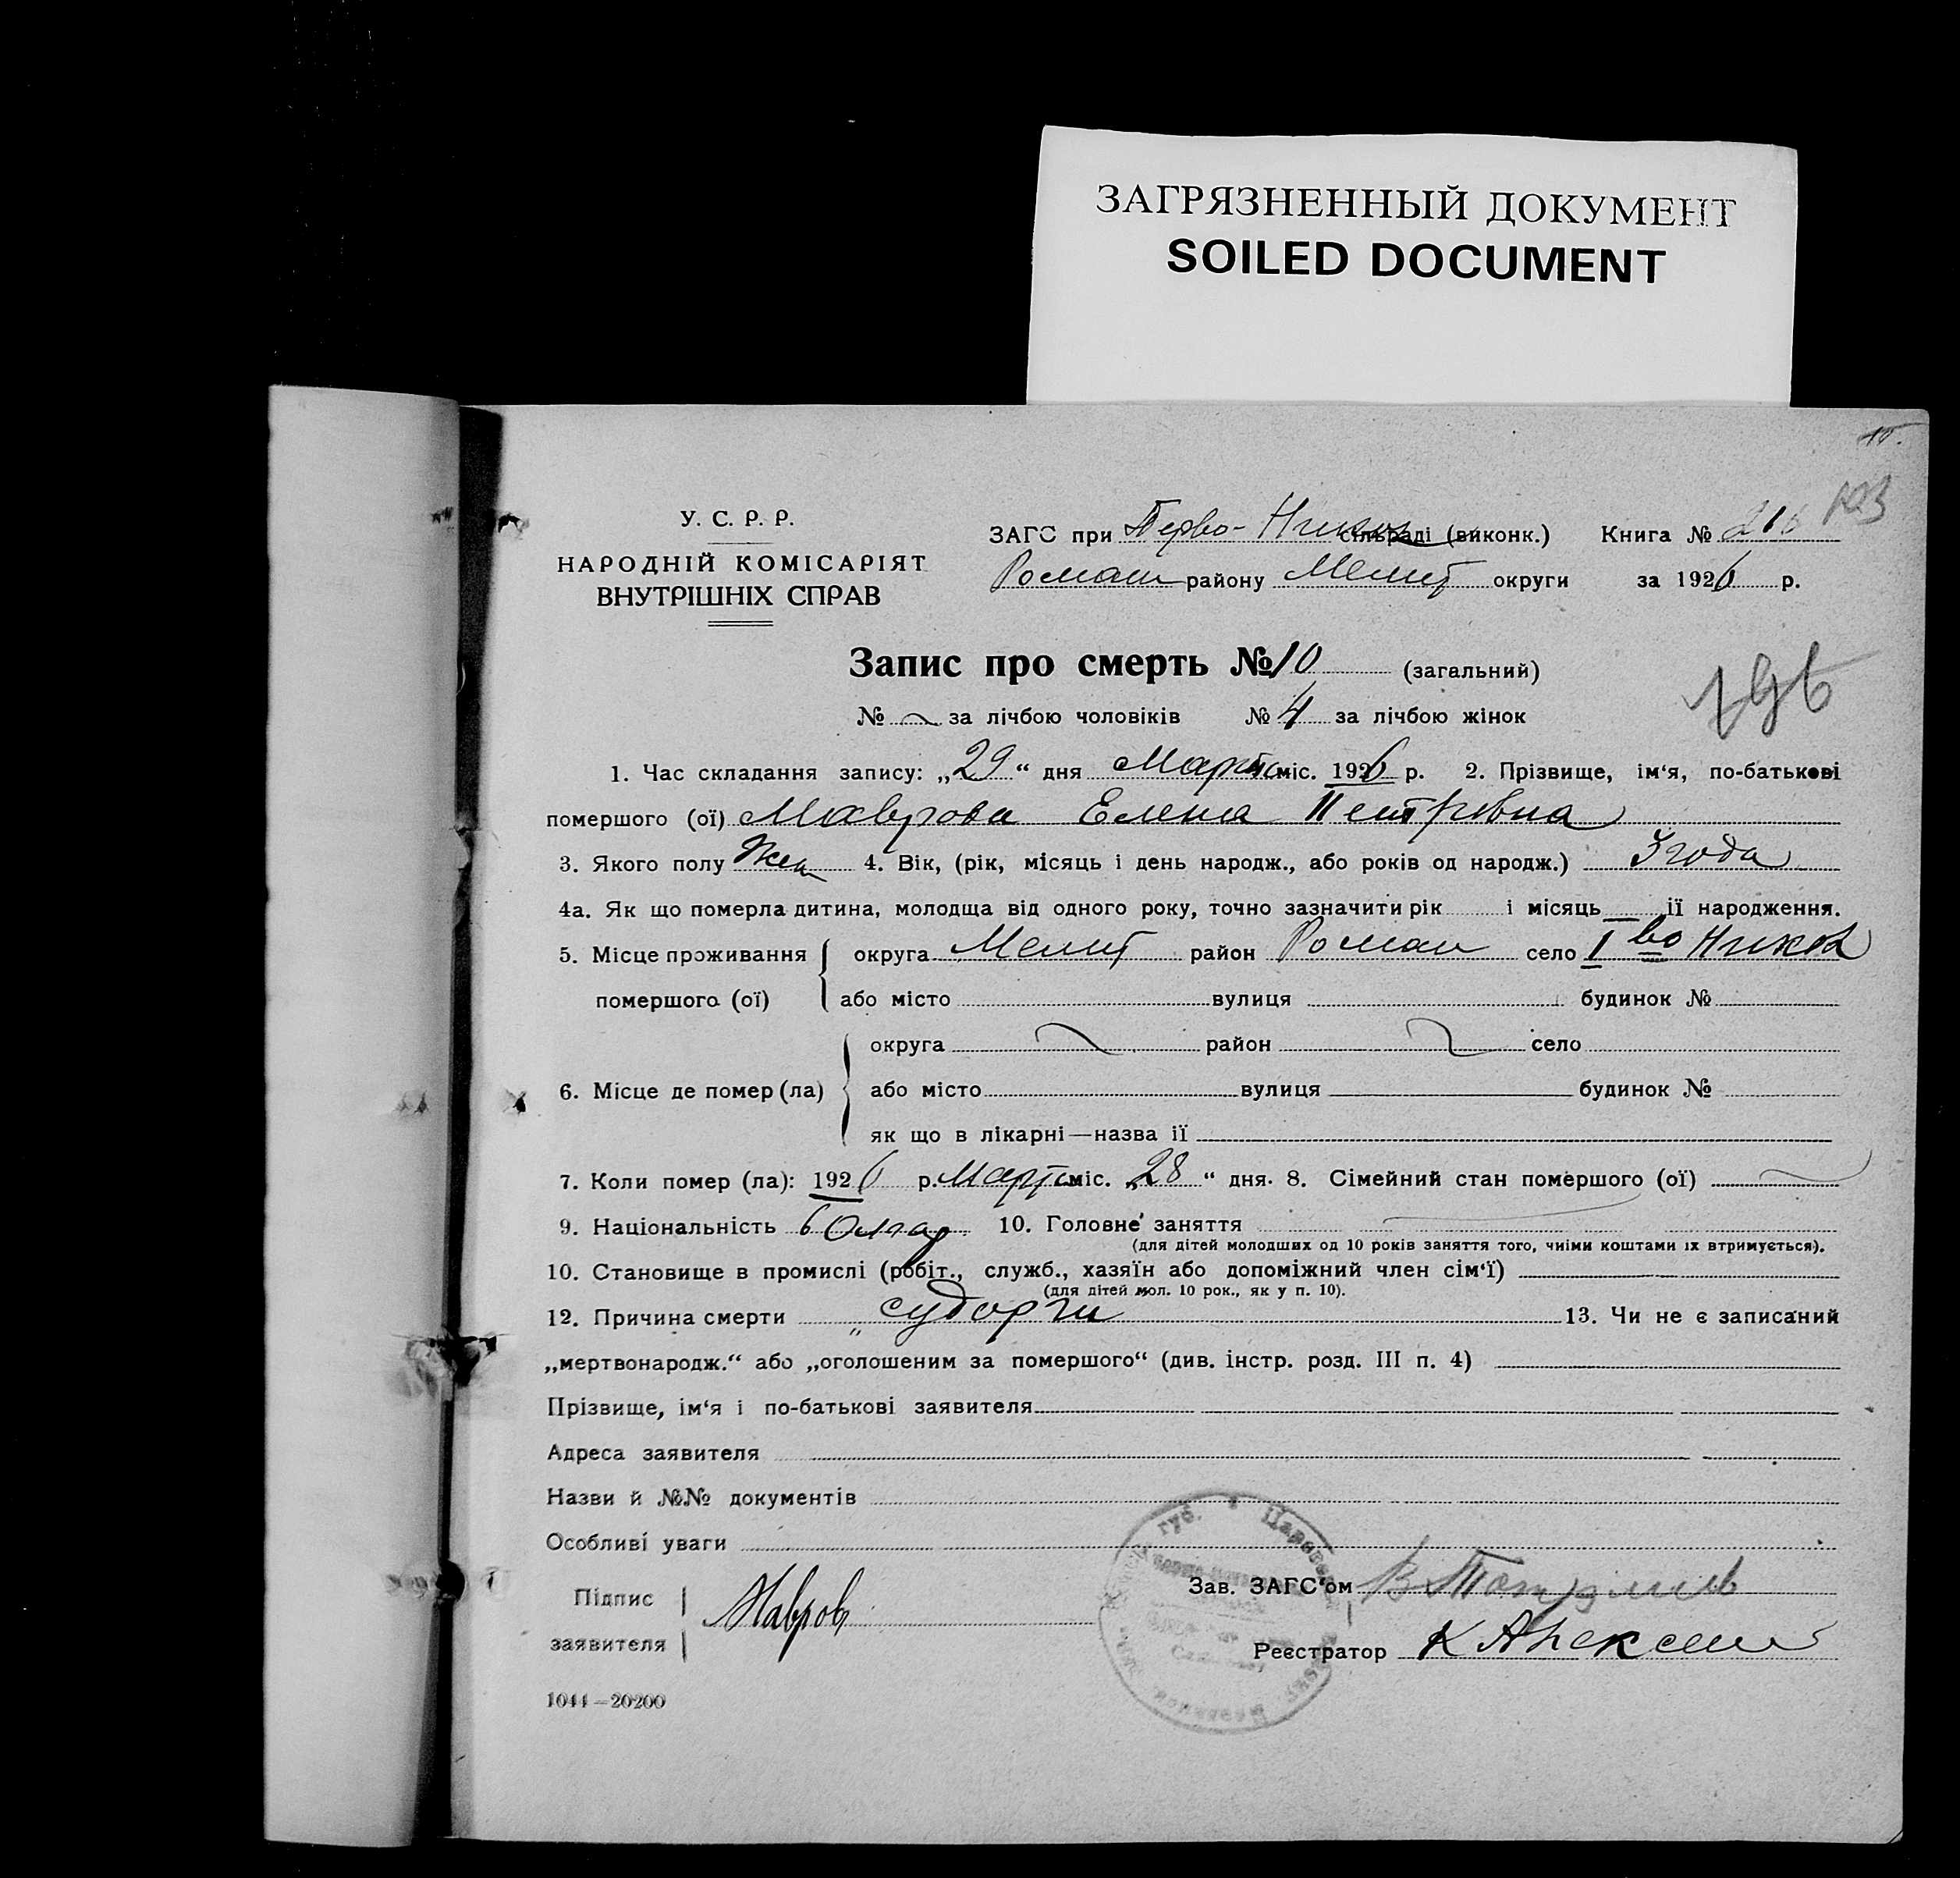 ЗАГРЯЗНЕННЫЙ ДОКУМЕНТ
SOILED DOCUMENT
У. С. Р. Р.
НАРОДНІЙ КОМІСАРІЯТ
ВНУТРІШНІХ СПРАВ
ЗАГС при Перво-Никол сільраді (виконк.) Книга №
Роман району Мелит округи за 1926 р.
Запис про смерть № 10 (загальний)
196
№ за лічбою чоловіків № 4 за лічбою жінок
1. Час складання запису: „29“ дня Марта міс. 1926 р. 2. Прізвище, ім‘я, по-батькові
помершого (ої) Маврова Елена Петровна
3. Якого полу Жен 4. Вік, (рік, місяць і день народж., або років од народж.) 3 года
4а. Як що померла дитина, молодща від одного року, точно зазначити рік і місяць її народження.
5. Місце проживання округа Мелит район Роман село I во Никол
помершого (ої) або місто вулиця будинок №
округа район село
6. Місце де помер (ла) або місто вулиця будинок №
як що в лікарні—назва її
7. Коли помер (ла): 1926 р. Марта міс. „28“ дня. 8. Сімейний стан помершого (ої)
9. Національність болгар 10. Головне заняття
(для дітей молодших од 10 років заняття того, чиіми коштами їх втримується).
10. Становище в промислі (робіт., служб., хазяїн або допоміжний член сім‘ї)
(для дітей мол. 10 рок., як у п. 10).
12. Причина смерти „ судорги 13. Чи не є записаний
„мертвонародж.“ або „оголошеним за помершого“ (див. інстр. розд. III п. 4)
Прізвище, ім‘я і по-батькові заявителя
Адреса заявителя
Назви й №№ документів
Особливі уваги
Підпис
заявителя Мавров
Зав. ЗАГС‘ом
Реєстратор К Алексеев
губ.
1044—20200